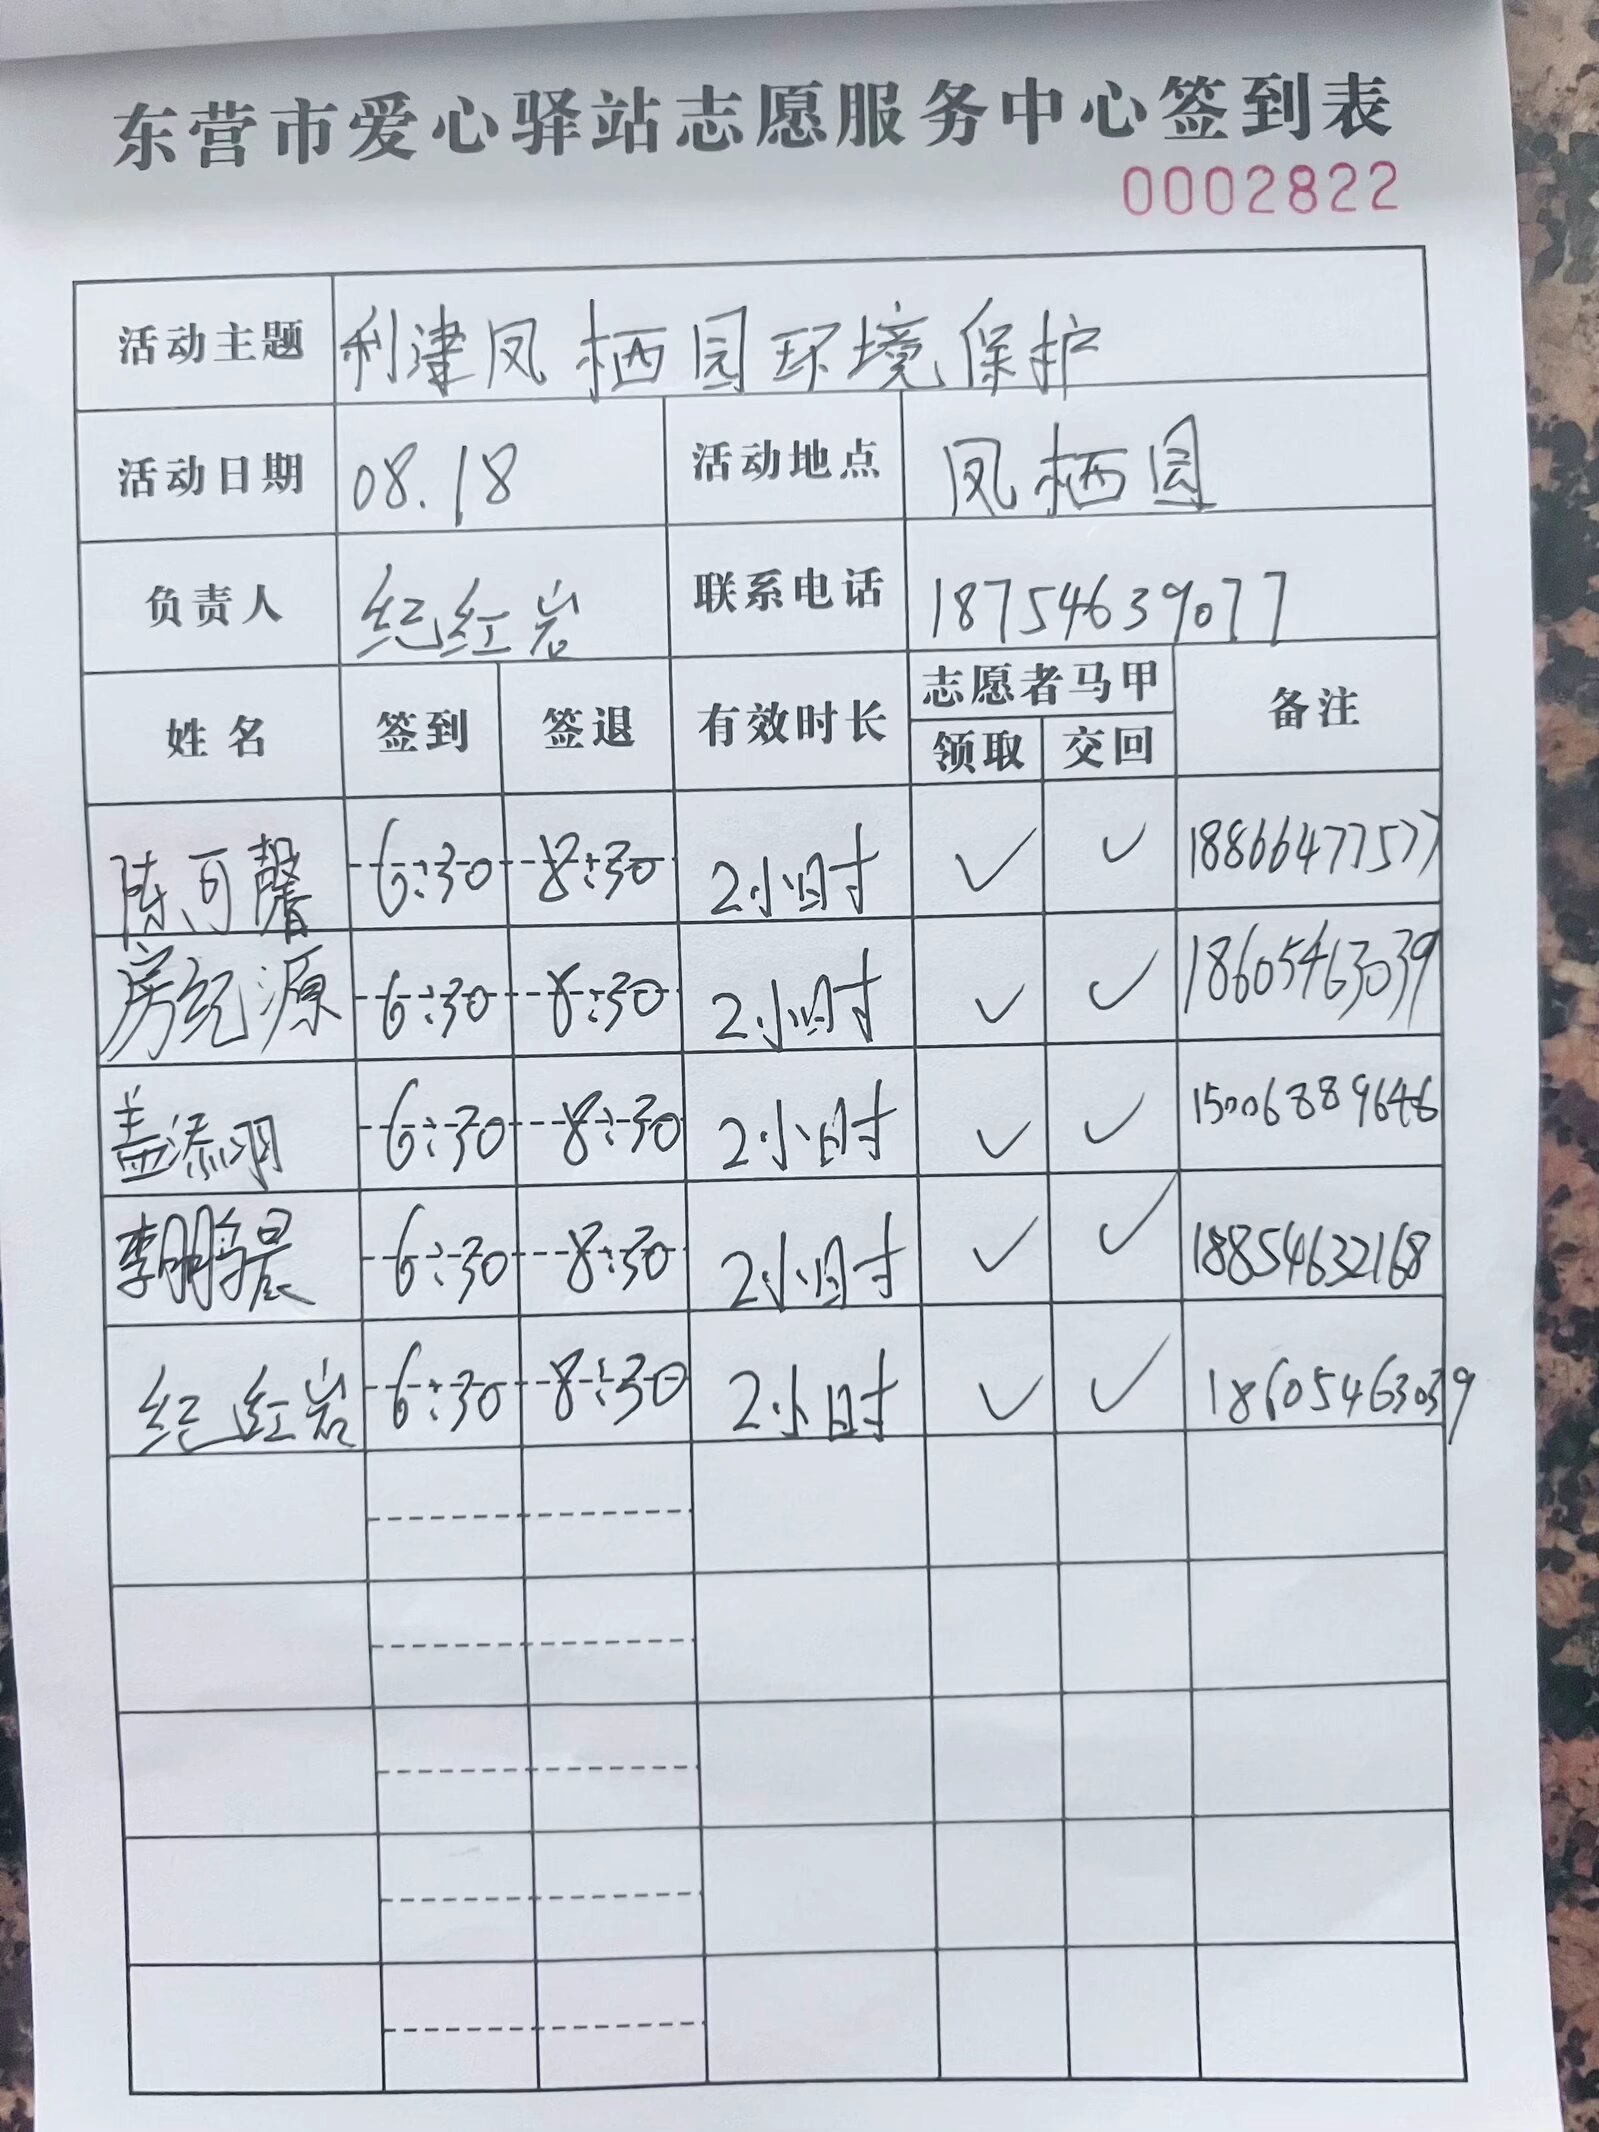 东营市爱心驿站志愿服务中心签到表
0002822
活动主题 利津凤栖园环境保护
活动日期 08.18 活动地点 凤栖园
负责人 纪红岩 联系电话 18754639077
姓名 签到 签退 有效时长 志愿者马甲 备注
领取 交回
陈可馨 6:30 8:30 2小时 ✓ ✓ 18866477577
房纪源 6:30 8:30 2小时 ✓ ✓ 18605463039
盖添羽 6:30 8:30 2小时 ✓ ✓ 15006889646
李鹏晨 6:30 8:30 2小时 ✓ ✓ 18854632168
纪红岩 6:30 8:30 2小时 ✓ ✓ 18605463039